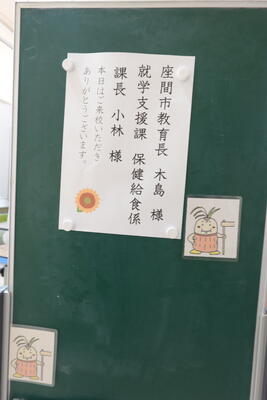 座間市教育長 木島 様
就学支援課 保健給食係
課長 小林 様
本日はご来校いただき
ありがとうございます。